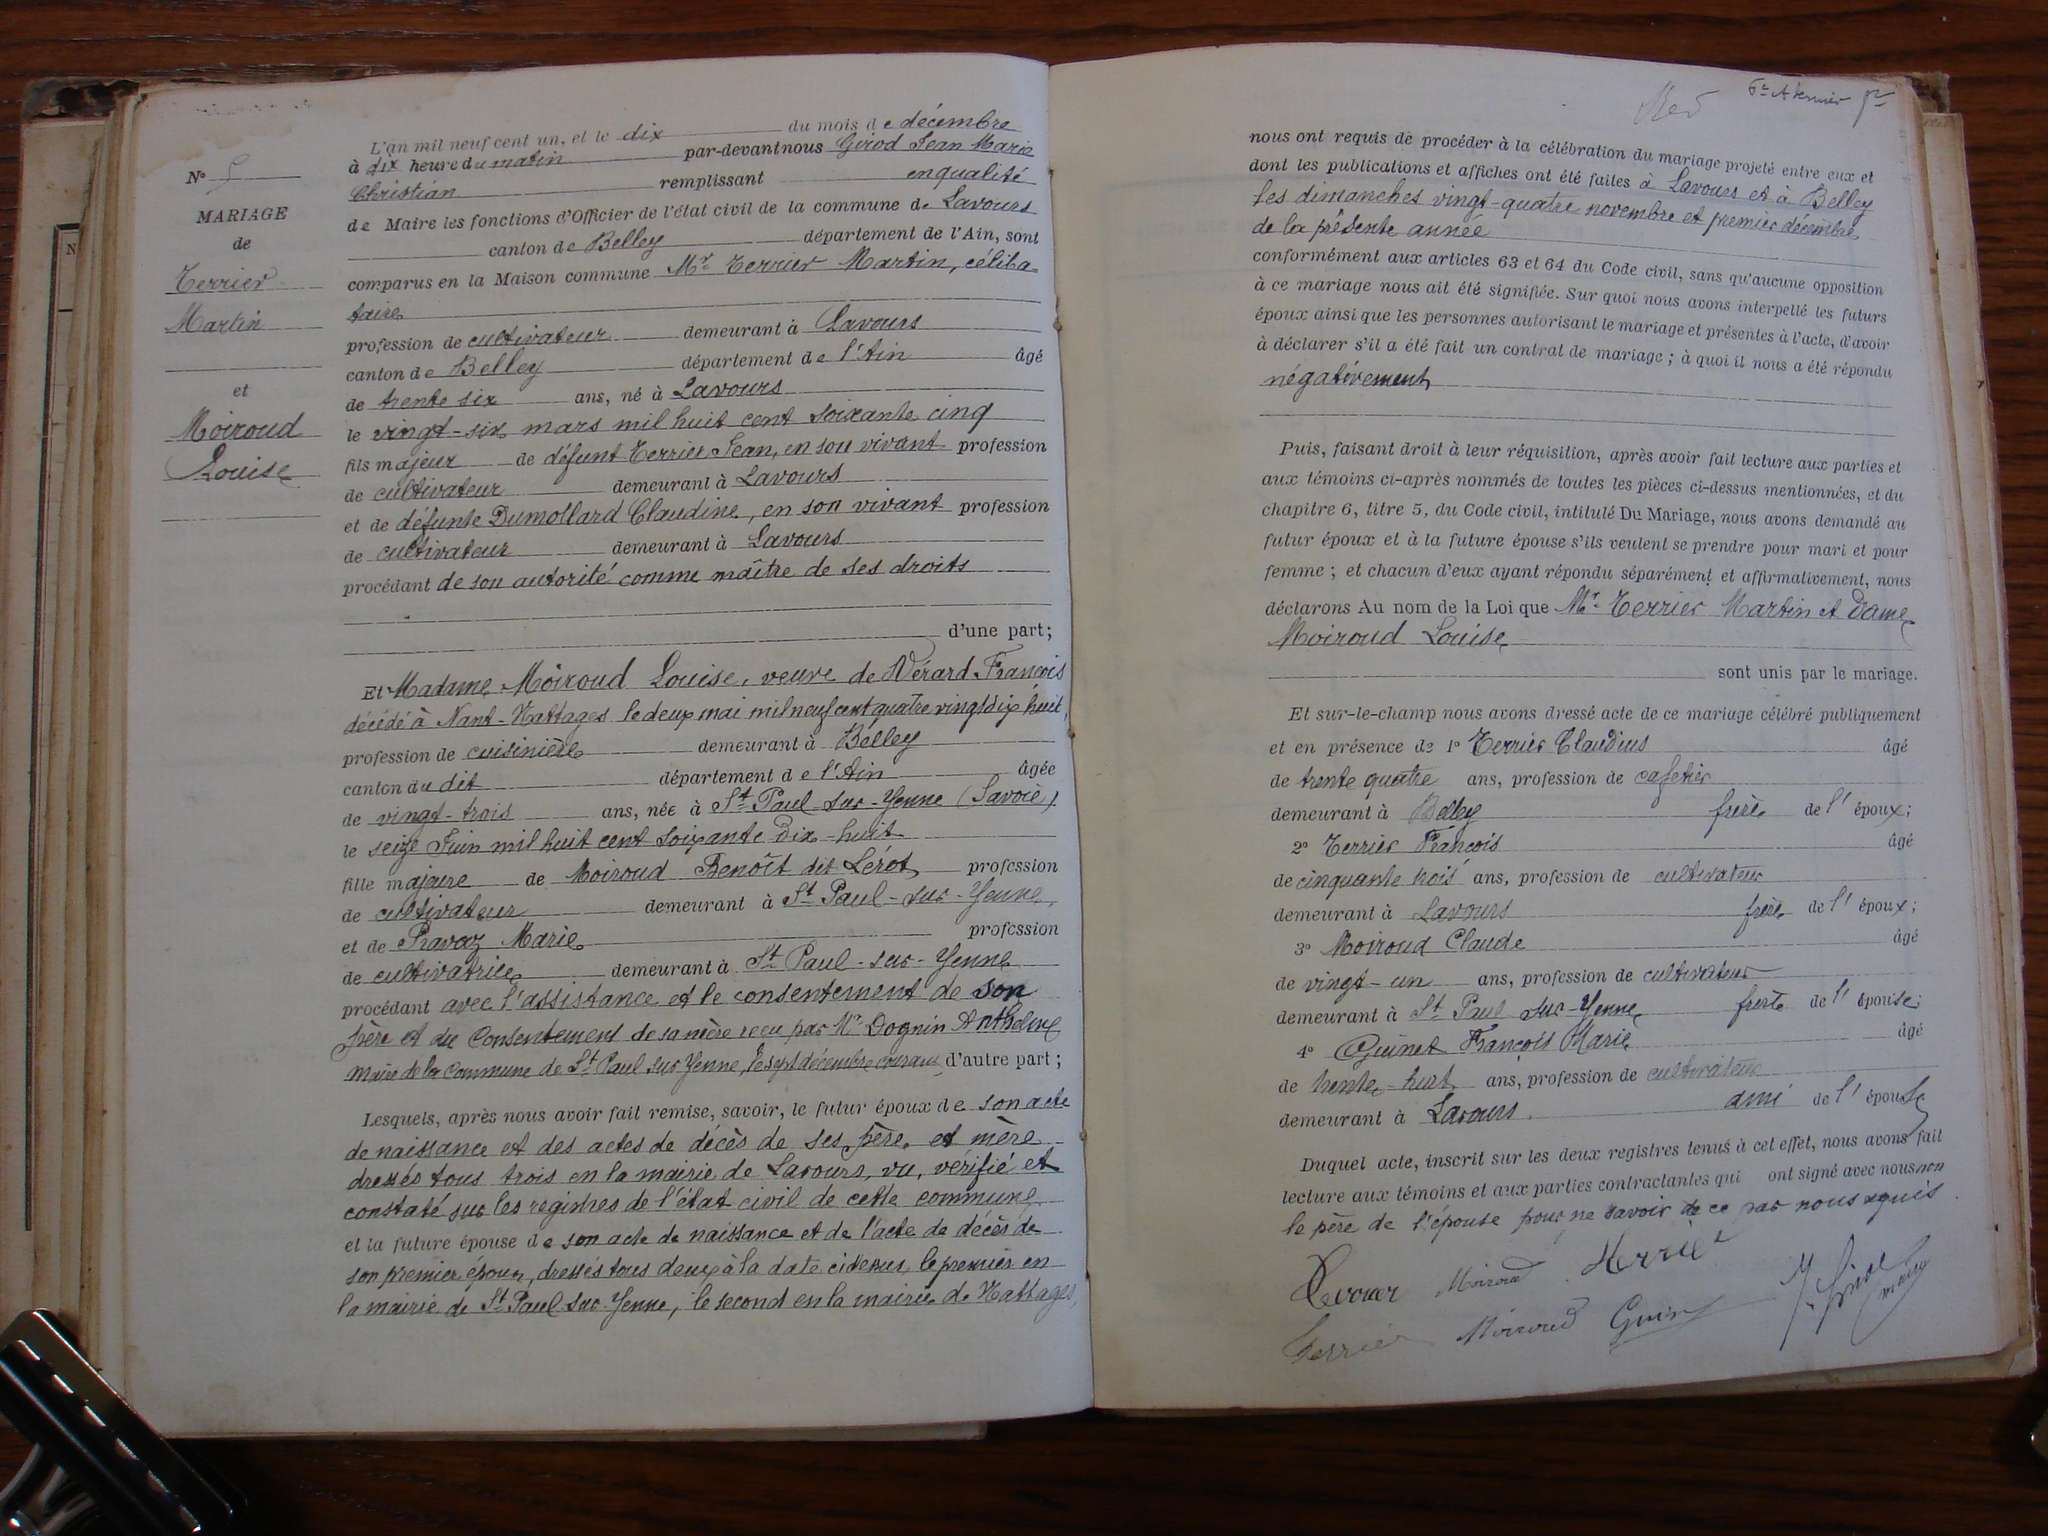 N° 5
MARIAGE
de
Terrier
Martin
et
Moiroud
Louise
L'an mil neuf cent un, et le dix du mois de décembre
à dix heure du matin par-devant nous Girod Jean Marie
Christian remplissant en qualité
de Maire les fonctions d'Officier de l'état civil de la commune de Lavours
canton de Belley département de l'Ain, sont
comparus en la Maison commune Mr Terrier Martin, céliba-
taire
profession de cultivateur demeurant à Lavours
canton de Belley département de l'Ain âgé
de trente six ans, né à Lavours
le vingt-six mars mil huit cent soixante cinq
fils majeur de défunt Terrier Jean, en son vivant profession
de cultivateur demeurant à Lavours
et de défunte Dumollard Claudine, en son vivant profession
de cultivateur demeurant à Lavours
procédant de son autorité comme maître de ses droits
d'une part;
Et Madame Moiroud Louise, veuve de Vérard François
décédé à Nant-Nattages le deux mai mil neuf cent quatre vingt dix huit,
profession de cuisinière demeurant à Belley
canton du dit département de l'Ain âgée
de vingt-trois ans, née à St Paul-sur-Yenne (Savoie)
le seize Juin mil huit cent soixante dix-huit
fille majeure de Moiroud Benoît dit Lérot profession
de cultivateur demeurant à St Paul-sur-Yenne,
et de Pravaz Marie profession
de cultivatrice demeurant à St Paul-sur-Yenne
procédant avec l'assistance et le consentement de son
père et du Consentement de sa mère reçu par Mr Dognin Anthelme
maire de la Commune de St Paul sur Yenne, le sept décembre courant d'autre part;
Lesquels, après nous avoir fait remise, savoir, le futur époux de son acte
de naissance et des actes de décès de ses père et mère
dressés tous trois en la mairie de Lavours, vu, vérifié et
constaté sur les registres de l'état civil de cette commune
et la future épouse de son acte de naissance et de l'acte de décès de
son premier époux, dressés tous deux à la date cidessus, le premier en
la mairie de St Paul sur Yenne, le second en la mairie de Nattages,
nous ont requis de procéder à la célébration du mariage projeté entre eux et
dont les publications et affiches ont été faites à Lavours et à Belley
les dimanches vingt-quatre novembre et premier décembre
de la présente année
conformément aux articles 63 et 64 du Code civil, sans qu'aucune opposition
à ce mariage nous ait été signifiée. Sur quoi nous avons interpellé les futurs
époux ainsi que les personnes autorisant le mariage et présentes à l'acte, d'avoir
à déclarer s'il a été fait un contrat de mariage; à quoi il nous a été répondu
négativement
Puis, faisant droit à leur réquisition, après avoir fait lecture aux parties et
aux témoins ci-après nommés de toutes les pièces ci-dessus mentionnées, et du
chapitre 6, titre 5, du Code civil, intitulé Du Mariage, nous avons demandé au
futur époux et à la future épouse s'ils veulent se prendre pour mari et pour
femme; et chacun d'eux ayant répondu séparément et affirmativement, nous
déclarons Au nom de la Loi que Mr Terrier Martin et Dame
Moiroud Louise
sont unis par le mariage.
Et sur-le-champ nous avons dressé acte de ce mariage célébré publiquement
et en présence de 1° Terrier Claudius âgé
de trente quatre ans, profession de cafetier
demeurant à Belley frère de l'époux;
2° Terrier François âgé
de cinquante trois ans, profession de cultivateur
demeurant à Lavours frère de l'époux;
3° Moiroud Claude âgé
de vingt-un ans, profession de cultivateur
demeurant à St Paul sur-Yenne frère de l'épouse;
4° Guinet François Marie âgé
de trente-huit ans, profession de cultivateur
demeurant à Lavours ami de l'épouse
Duquel acte, inscrit sur les deux registres tenus à cet effet, nous avons fait
lecture aux témoins et aux parties contractantes qui ont signé avec nous non
le père de l'épouse pour ne savoir de ce par nous requis
Terrier Moiroud Terrier
Terrier Moiroud Guinet
J. Girod
maire